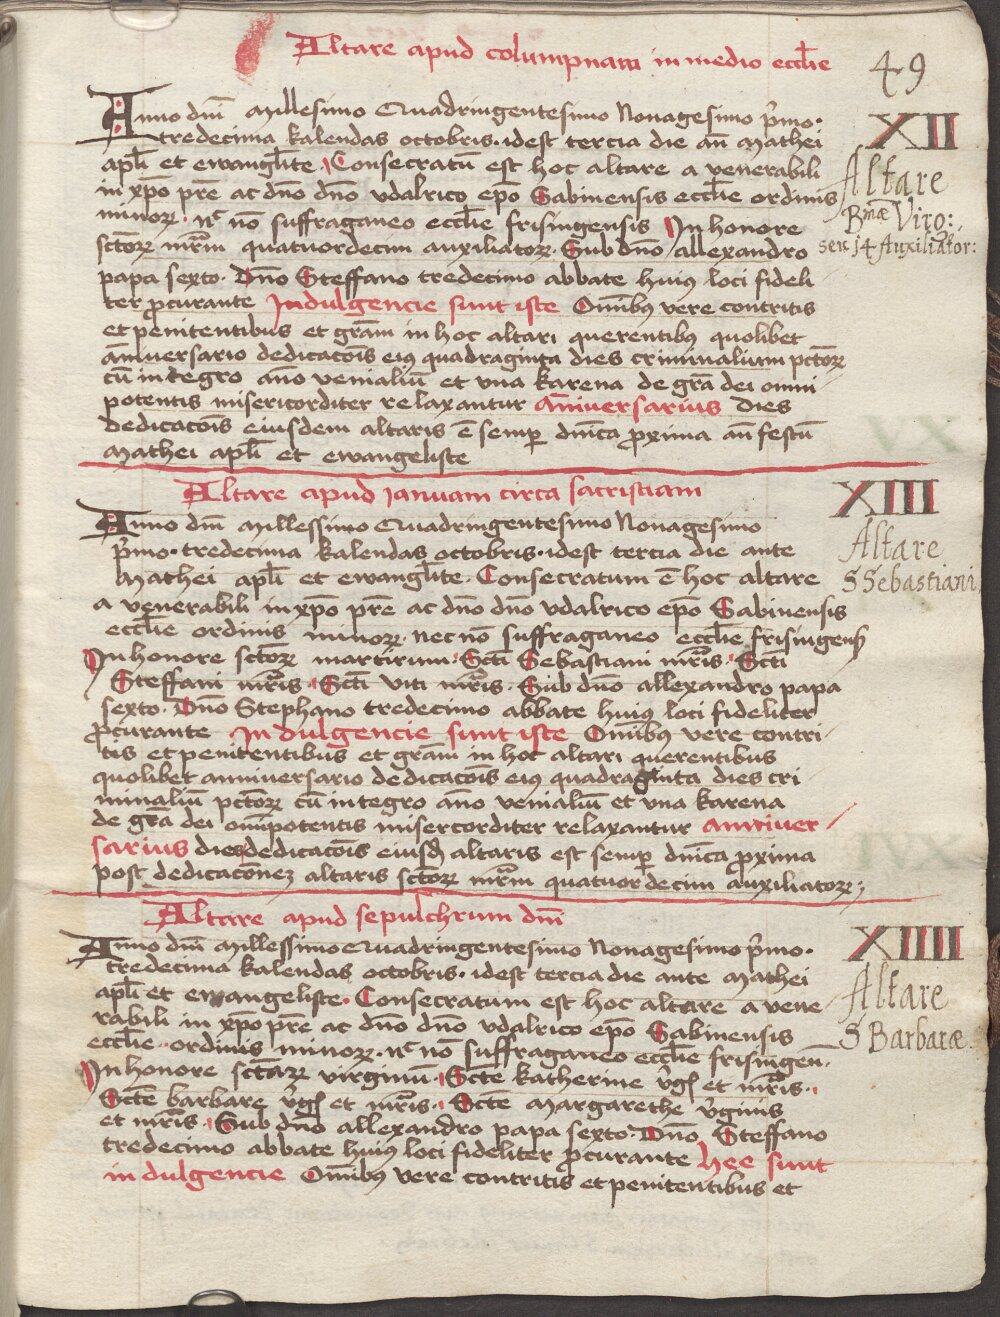 Altare apud columpnam in medio eccl̄ie
49
Anno dn̄i Millesimo Quadringentesimo Nonagesimo p̄mo·
tredecima kalendas octobris· idest tercia die an̄ Mathei
apl̄i et ewangl̄ite Consecratū est hoc altare a venerabili
in xp̄o pr̄e ac dn̄o dn̄o vdalrico ep̄o Sabinensis eccl̄ie ordinis
minoꝝ· nc̄ nō suffraganeo eccl̄ie frisingensis In honore
sctōꝝ mr̄m quatuordecim auxiliatoꝝ· Sub dn̄o allexandro
papa sexto· Dn̄o Steffano tredecimo abbate huiꝰ loci fideli
ter p̄curante Indulgencie sunt iste Om̄ibꝰ vere contritis
et penitentibus et grām in hoc altari querentibꝰ quolibet
an̄iuersario dedicacōis eiꝰ quadraginta dies criminalium pctōꝝ
cū integro an̄o venialiū et vna karena de grā dei omni
potentis misericorditer relaxantur an̄iuersarius dies
dedicacōis eiusdem altaris ē semꝑ dn̄ica p̄xima an̄ festū
Mathei apl̄i et ewangeliste
XII
Altare
Bmæ Virg:
seu 14 Auxiliator:
Altare apud Ianuam circa sacristiam
Anno dn̄i Millessimo Quadringentesimo Nonagesimo
p̄mo· tredecima kalendas octobris· idest tercia die ante
Mathei apl̄i et ewangl̄ite· Consecratum ē hoc altare
a venerabili in xp̄o pr̄e ac dn̄o dn̄o vdalrico ep̄o Sabinensis
eccl̄ie ordinis minoꝝ· nec nō suffraganeo eccl̄ie frisingens̄
In honore sctōꝝ martirum· Sctī Sebastiani mr̄is· Sctī
Steffani mr̄is· Sctī viti mr̄is· Sub dn̄o allexandro papa
sexto· Dn̄o Stephano tredecimo abbate huiꝰ loci fideliter
p̄curante Indulgencie sunt iste Om̄ibꝰ vere contri
tis et penitentibus et grām in hoc altari querentibus
quolibet anniuersario dedicacōis eiꝰ quadraginta dies cri
minaliū pctōꝝ cū integro an̄o venialiū et vna karena
de grā dei om̄ipotentis misercorditer relaxantur anniuer
sarius dies dedicacōis eiusꝺ̄ altaris est semper dn̄ica p̄xima
post dedicacōnez altaris sctōꝝ mr̄m quatuordecim Auxiliatoꝝ;
XIII
Altare
S Sebastiani
Altare apud sepulchrum dn̄i
Anno dn̄i Millessimo Quadringentesimo Nonagesimo p̄mo·
tredecima kalendas octobris· idest tercia die ante Mathei
apl̄i et ewangeliste· Consecratum est hoc altare a vene
rabili in xp̄o pr̄e ac dn̄o dn̄o vdalrico ep̄o Sabinensis
eccl̄ie· ordinis minoꝝ· nc̄ nō suffraganeo eccl̄ie frisingen·
In honore sctāꝝ virginū· Sctē katherine v̄gīs et mr̄is·
Sctē barbare v̄gīs et mr̄is· Sctē Margarethe v̄ginis
et mr̄is· Sub dn̄o allexandro papa sexto· Dn̄o Steffano
tredecimo abbate huiꝰ loci fideliter p̄curante hee sunt
indulgencie Om̄ibꝰ vere contritis et penitentibus et
XIIII
Altare
S Barbaræ